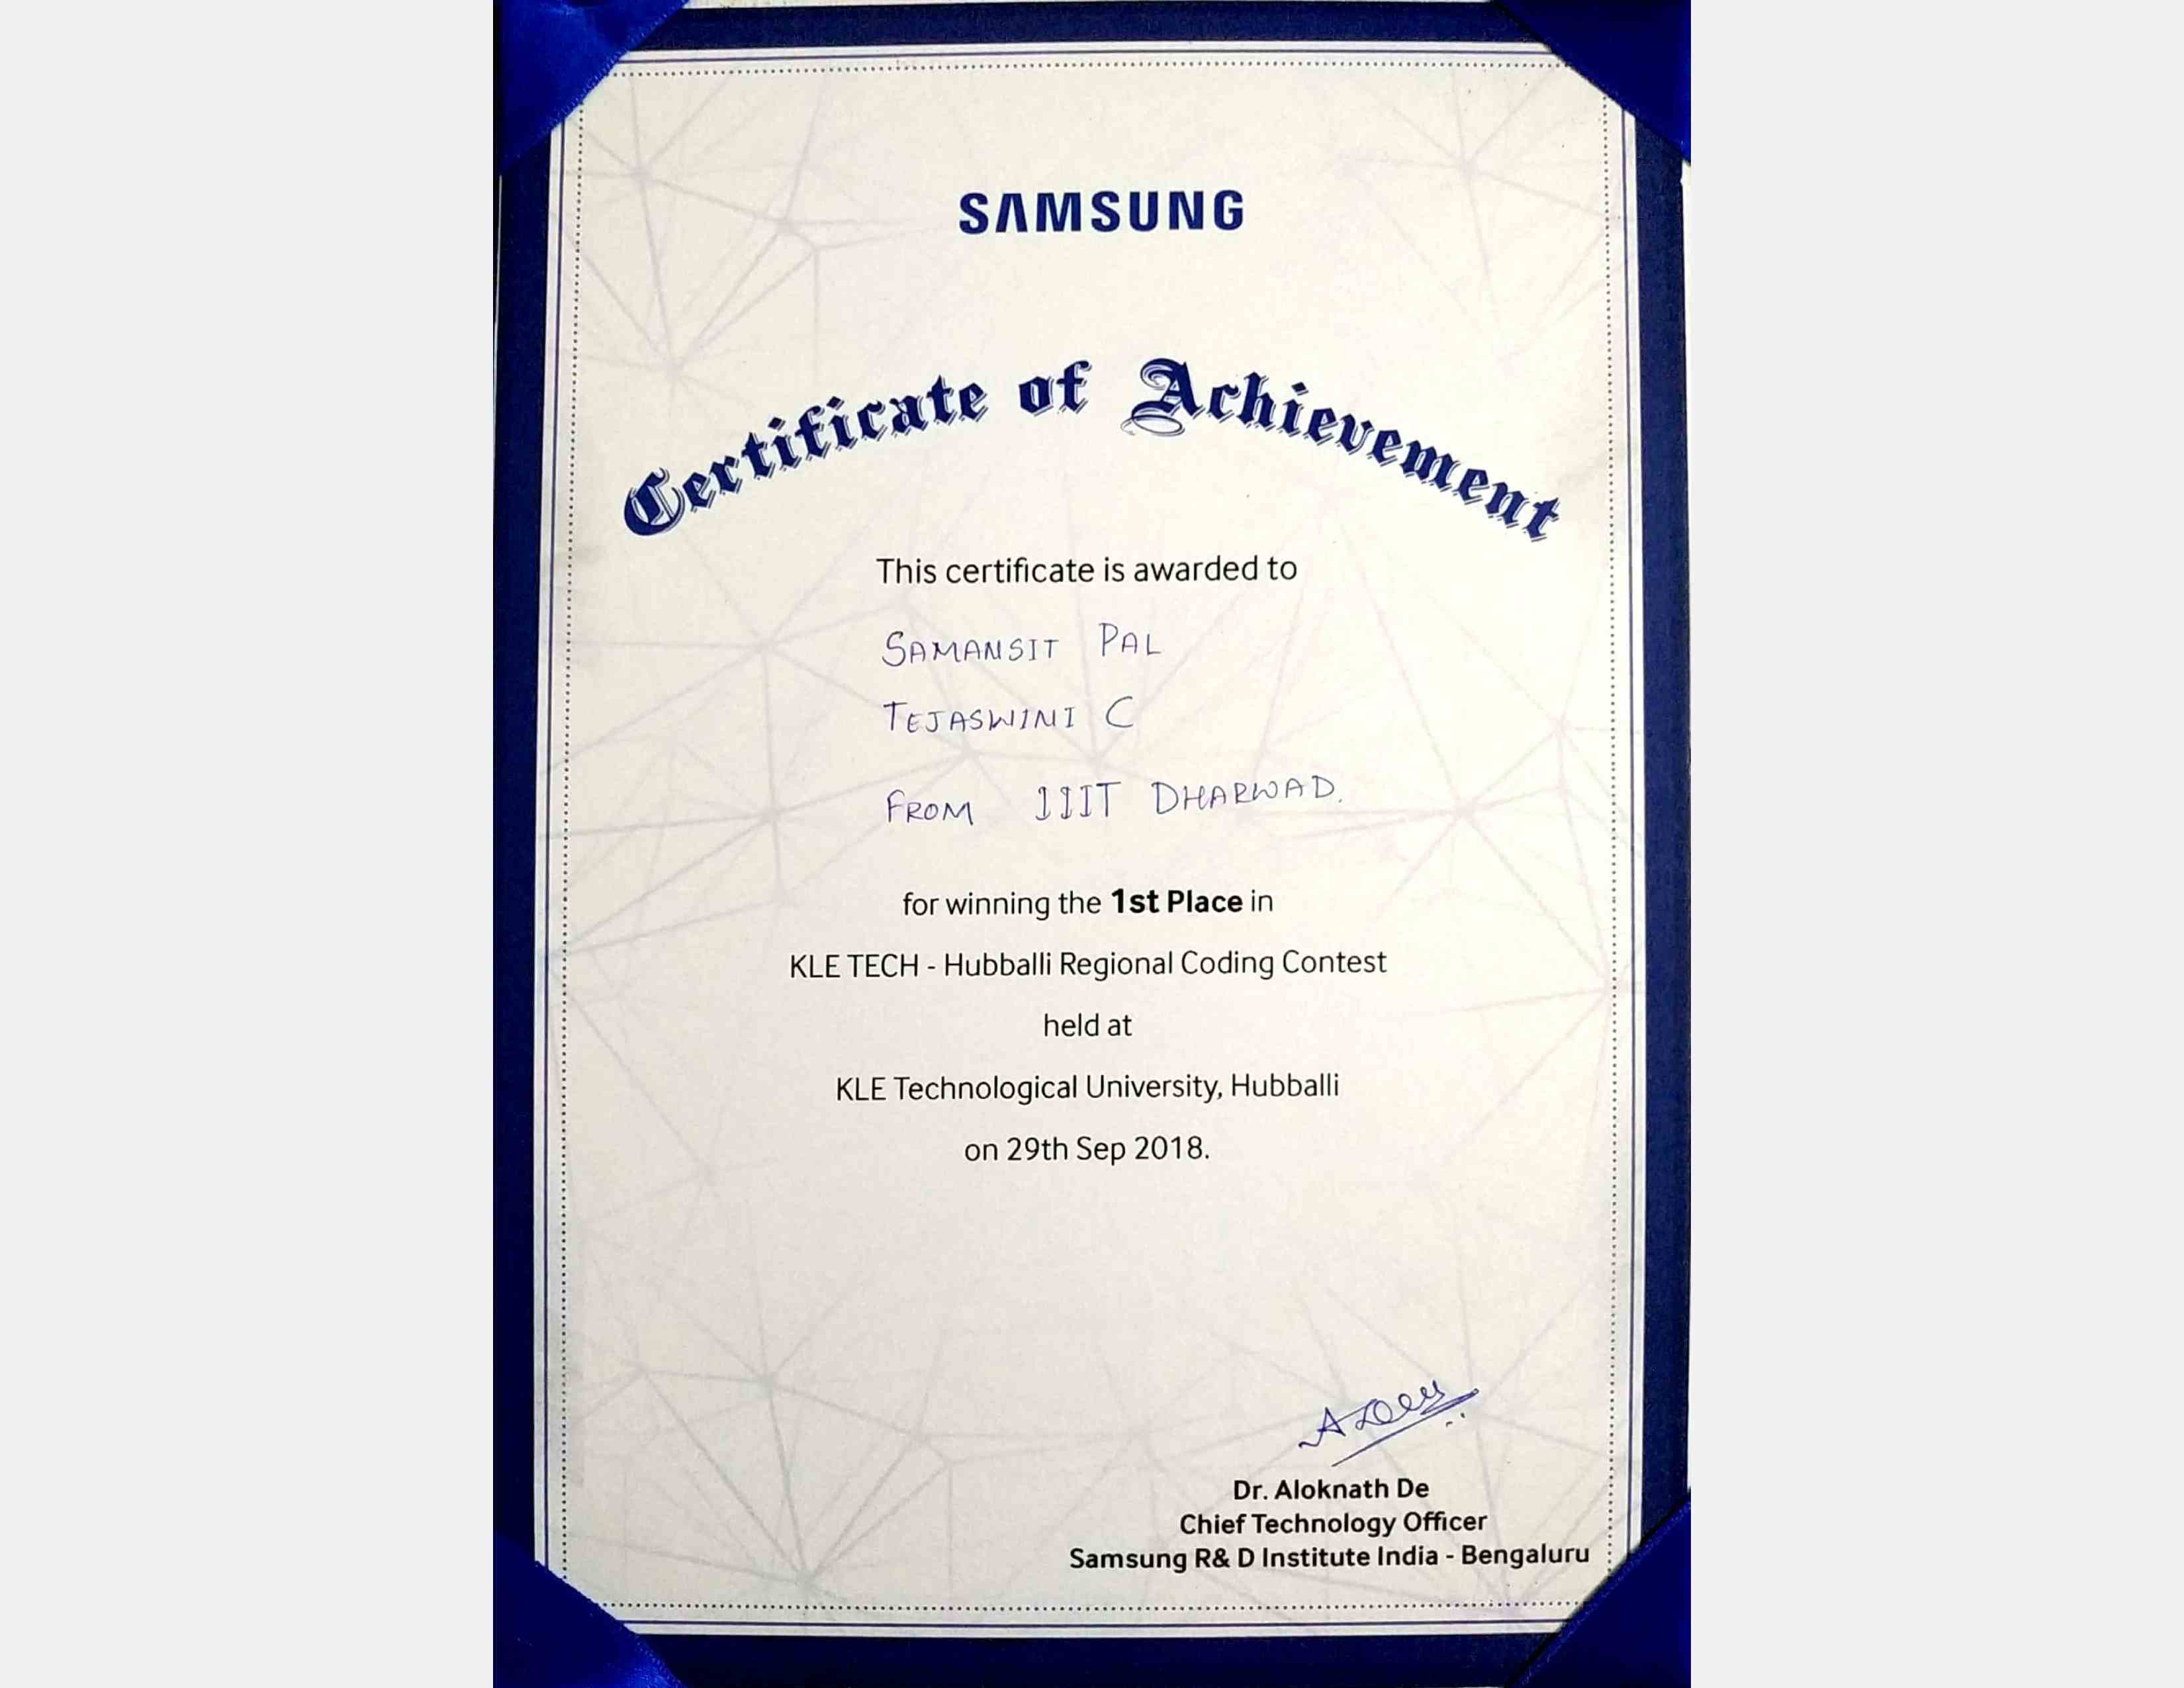 SAMSUNG
Certificate of Achievement
This certificate is awarded to
SAMANSIT PAL
TEJASWINI C
FROM IIIT DHARWAD.
for winning the 1st Place in
KLE TECH - Hubballi Regional Coding Contest
held at
KLE Technological University, Hubballi
on 29th Sep 2018.
ADey
Dr. Aloknath De
Chief Technology Officer
Samsung R& D Institute India - Bengaluru